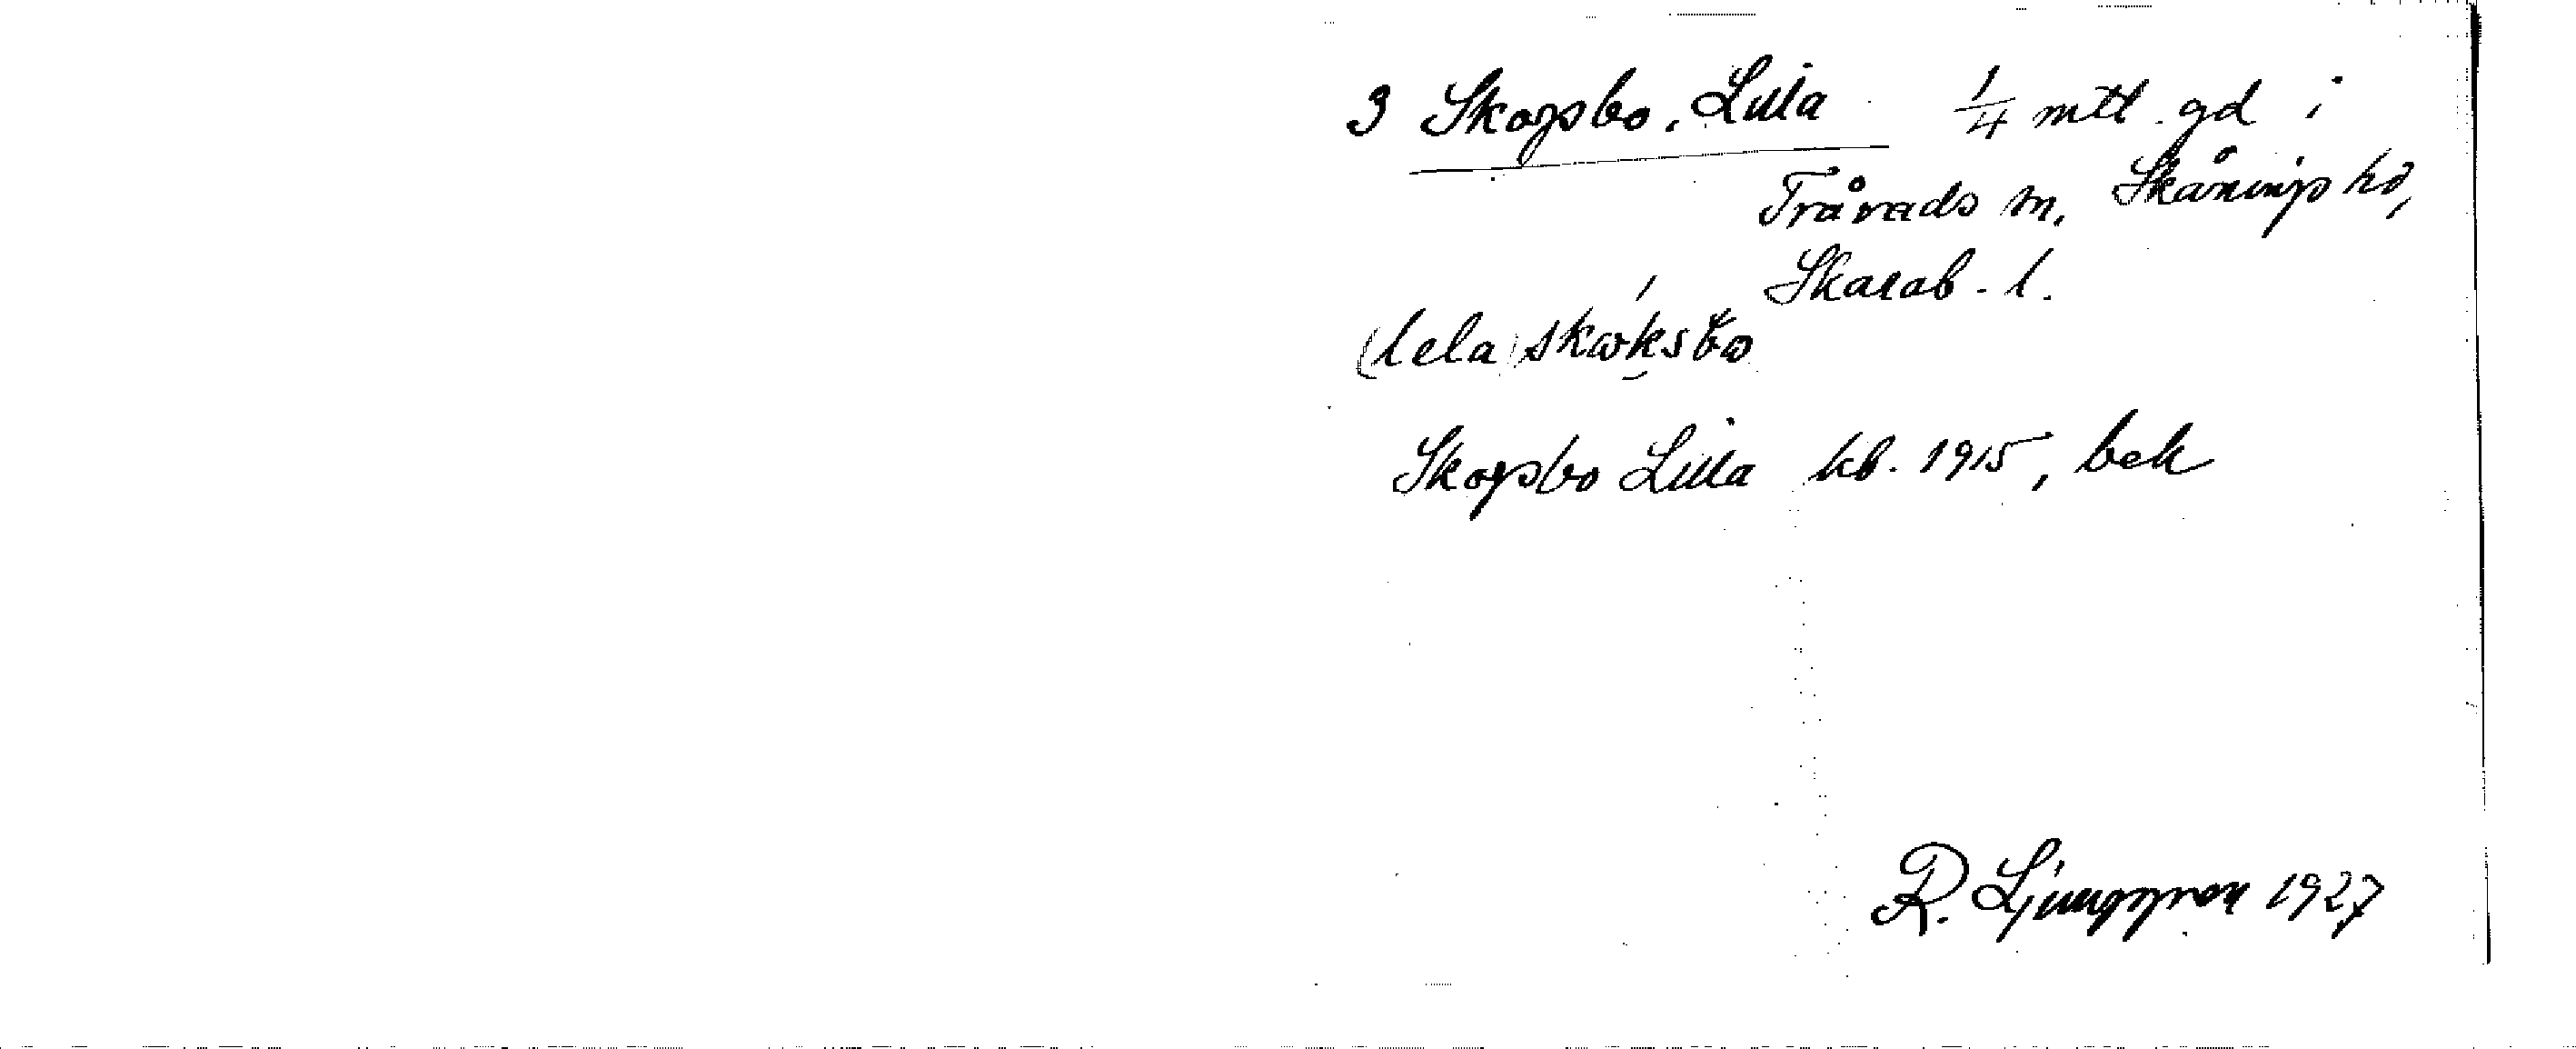 3 Skogsbo, Lilla 1/4 mtl. gd i
Trårads sn, Skånings hd,
Skarab. l.
(lela) skɷksbɷ
Skogsbo Lilla kb. 1915, bek
R. Ljunggren 1927